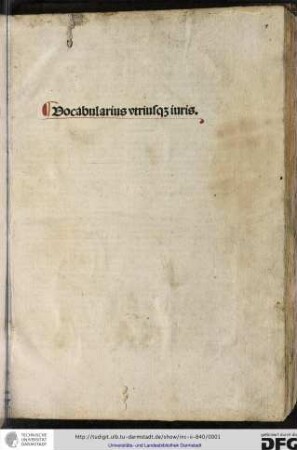 Vocabularius vtriusqꝫ iuris.
TECHNISCHE
UNIVERSITÄT
DARMSTADT
http://tudigit.ulb.tu-darmstadt.de/show/inc-ii-640/0001
Universitäts- und Landesbibliothek Darmstadt
gefördert durch die
DFG